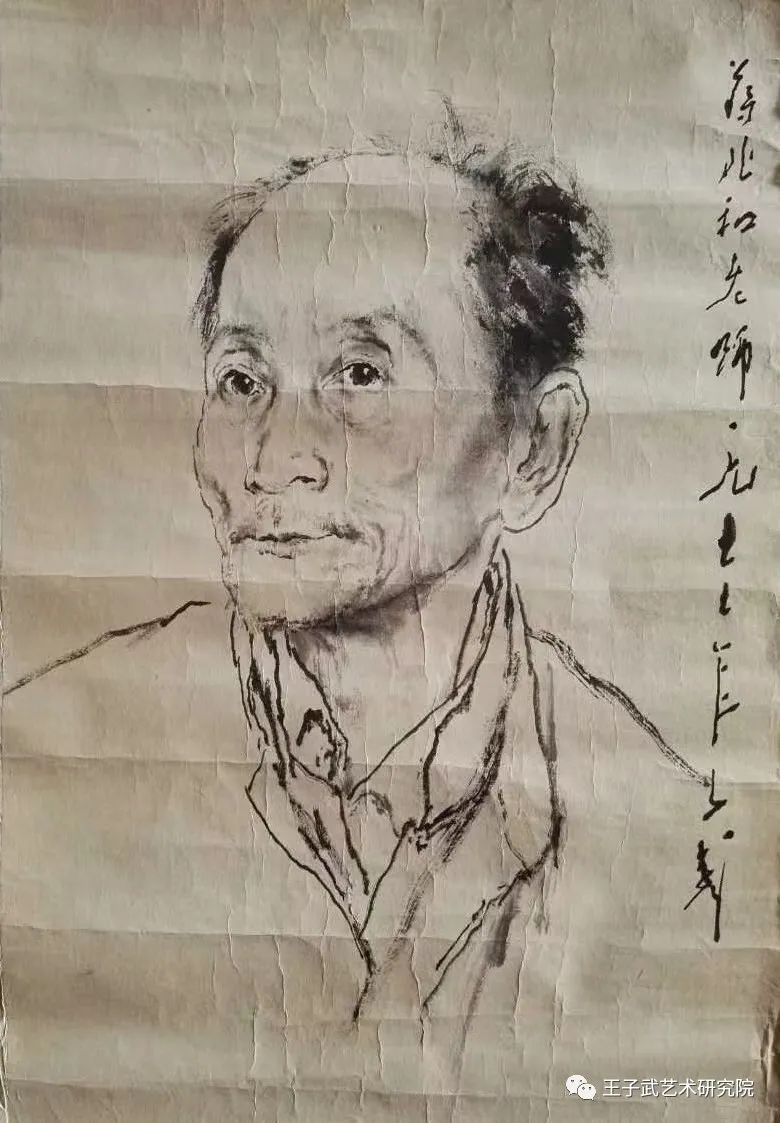 蒋兆和老师·一九七七年子武
王子武艺术研究院